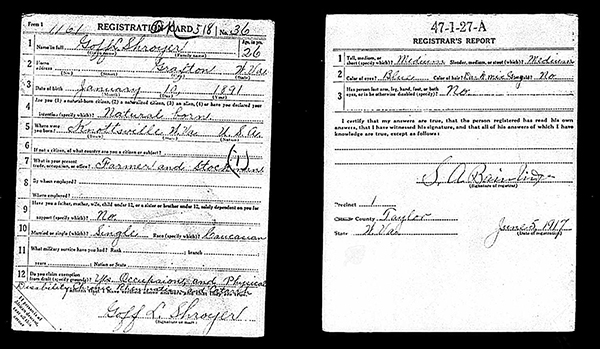 Form 1 1161 REGISTRATION CARD 518 No. 36
1 Name in full Goff L. Shroyer Age, in yrs. 26
(Given name) (Family name)
2 Home address Grafton W. Va.
(No.) (Street) (City) (State)
3 Date of birth January 10, 1891
(Month) (Day) (Year)
4 Are you (1) a natural-born citizen, (2) a naturalized citizen, (3) an alien, (4) or have you declared your
intention (specify which)? Natural born
5 Where were you born? Knottsville W. Va. U.S.A.
(Town) (State) (Nation)
6 If not a citizen, of what country are you a citizen or subject?
7 What is your present trade, occupation, or office? Farmer and Stockman (1)
8 By whom employed?
Where employed?
9 Have you a father, mother, wife, child under 12, or a sister or brother under 12, solely dependent on you for
support (specify which)? No.
10 Married or single (which)? Single Race (specify which)? Caucasian
11 What military service have you had? Rank ; branch
years ; Nation or State
12 Do you claim exemption from draft (specify grounds)? Yes. Occupaions and Physical
Disability,
Goff L. Shroyer
(Signature or mark)
47-1-27-A
REGISTRAR'S REPORT
1 Tall, medium, or short (specify which)? Medium Slender, medium, or stout (which)? Medium
2 Color of eyes? Blue Color of hair? Bald? No
3 Has person lost arm, leg, hand, foot, or both eyes, or is he otherwise disabled (specify)? No.
I certify that my answers are true, that the person registered has read his own
answers, that I have witnessed his signature, and that all of his answers of which I have
knowledge are true, except as follows:
S. A.
(Signature of registrar)
Precinct 1
County Taylor
State W. Va.
June 5, 1917
(Date of registration)